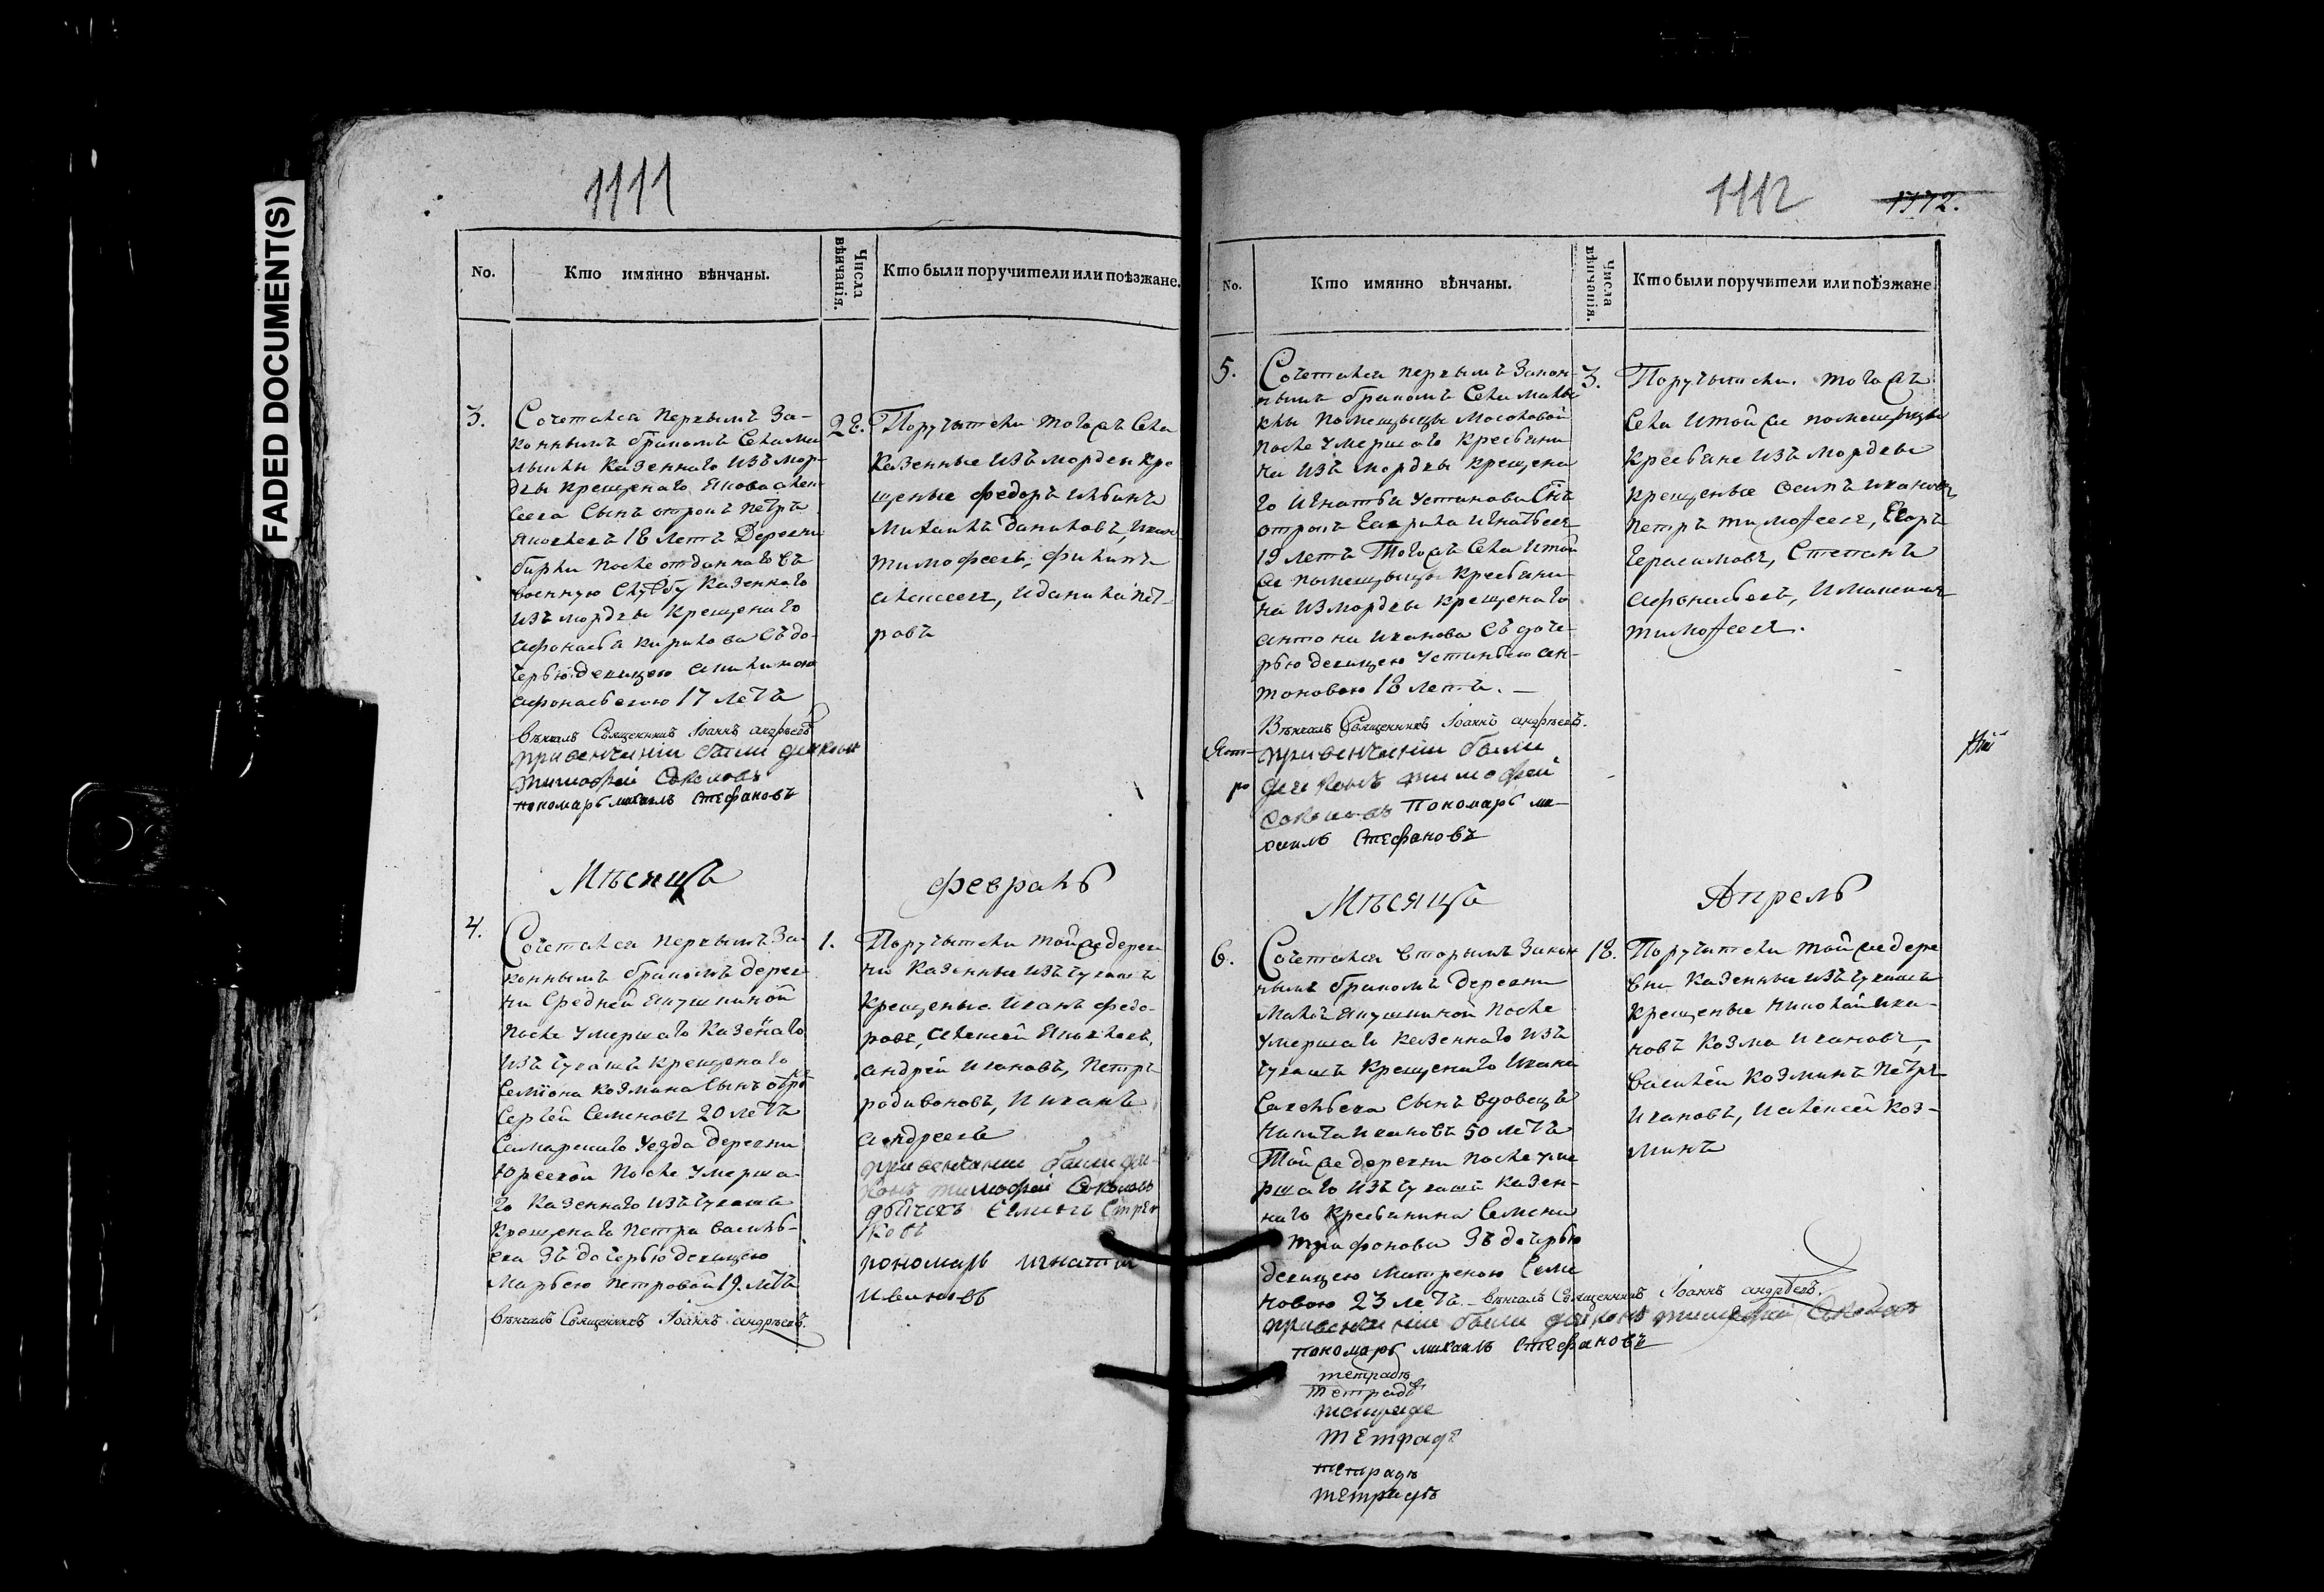 FADED DOCUMENT(S)
1111
No.
Кто имянно вѣнчаны.
Числа вѣнчанія.
Кто были поручители или поѣзжане.
3.
Сочетался первымъ За-
коннымъ бракомъ Села Ма
лыклы Казеннаго Изъ мор-
двы крещенаго Якова Алек
сеева Сынъ отрокъ Петръ
Яковлевъ 18 летъ Деревни
бирли После отданнаго въ
военную Службу Казеннаго
Изъ мордвы Крещенаго
Афонасья Кирилова Съ до-
черью девицею Акилиною
Афонасьевою 17 летъ
Вѣнчалъ Священникъ Іоаннъ андрѣевъ
при венчании были диаконъ
Тимофей Соколовъ
пономарь михаилъ Стефановъ
28.
Поручители тогожъ Села
Казенные Изъ мордвы кре
щеные федоръ Ильинъ
Михаилъ Даниловъ, Иванъ
тимофеевъ, филипъ
Алексеевъ, и данила пет-
ровъ
Мѣсяцъ
февраль
4.
Сочетался первымъ За-
коннымъ бракомъ дерев
ни Средней Якушкиной
После умершаго Казеннаго
Изъ чувашъ Крещенаго
Семиона Козмина Сынъ отрокъ
Сергей Семеновъ 20 летъ
Самарскаго уезда деревни
После умерша
го Казеннаго Изъ чувашъ
Крещенаго Петра василь-
ева Зъ дочерью девицею
Марьею Петровой 19. летъ
Вѣнчалъ Священникъ Іоаннъ андрѣевъ.
1.
Поручители тойже дерев
ни Казенные Изъ чувашъ
Крещеные. Иванъ федо-
ровъ, Алексей Яковлевъ,
Андрей Ивановъ, Петръ
родивоновъ, И иванъ
Андреевъ
при венчании были диа-
конъ тимофей Соколовъ
дьячекъ Семенъ
пономарь игнатий
Ивановъ
1112
1112.
No.
Кто имянно вѣнчаны.
Числа вѣнчанія.
Кто были поручители или поѣзжане.
5.
Сочетался первымъ Закон-
нымъ бракомъ Села Малы
клы Помещицы Мосоловой
После умершаго Кресьяни
на Изъ мордвы крещена
го Игнатья Устинова Сынъ
отрокъ Гаврила Игнатьевъ
19 летъ Тогожъ Села И той
же помещицы Кресьяни
на Измордвы крещенаго
Антона Иванова Съ доче-
рью девицею Устиньею Ан-
тоновою 18 летъ. —
Вѣнчалъ Священникъ Іоаннъ андрѣевъ.
при венчании были
диаконъ тимофей
Соколовъ Пономарь ми-
хаилъ Стефановъ
3.
Поручители. тогожъ
Села И тойже помещицы
Кресьяне Изъ мордвы
крещеные Осипъ Ивановъ,
Петръ тимофеевъ, Егоръ
Герасимовъ, Степанъ
Афонасьевъ,
тимофеевъ.
Мѣсяцъ
Апрель
6.
Сочетался вторымъ Закон
нымъ бракомъ деревни
Малой Якушкиной После
умершаго Казеннаго Изъ
чувашъ Крещенаго Ивана
Савельева Сынъ вдовецъ
Никита Ивановъ 50 летъ
Тойже деревни После уме
ршаго Изъ чувашъ Казен-
наго Кресьянина Семена
трифонова Зъ дочерью
девицею Матреною Семе
новою 23 летъ. — Вѣнчалъ Священникъ Іоаннъ андрѣевъ.
при венчании были диаконъ тимофей Соколовъ
пономарь михаилъ Стефановъ
18.
Поручители тойже дере
вни Казенные Изъ чувашъ
Крещеные Николай Ива-
новъ Козма Ивановъ,
василей Козминъ Петръ
Ивановъ, И Алексей Коз-
минъ
тетрадь
тетрадь
тетраде
тетрадъ
тетрадь
тетрадь